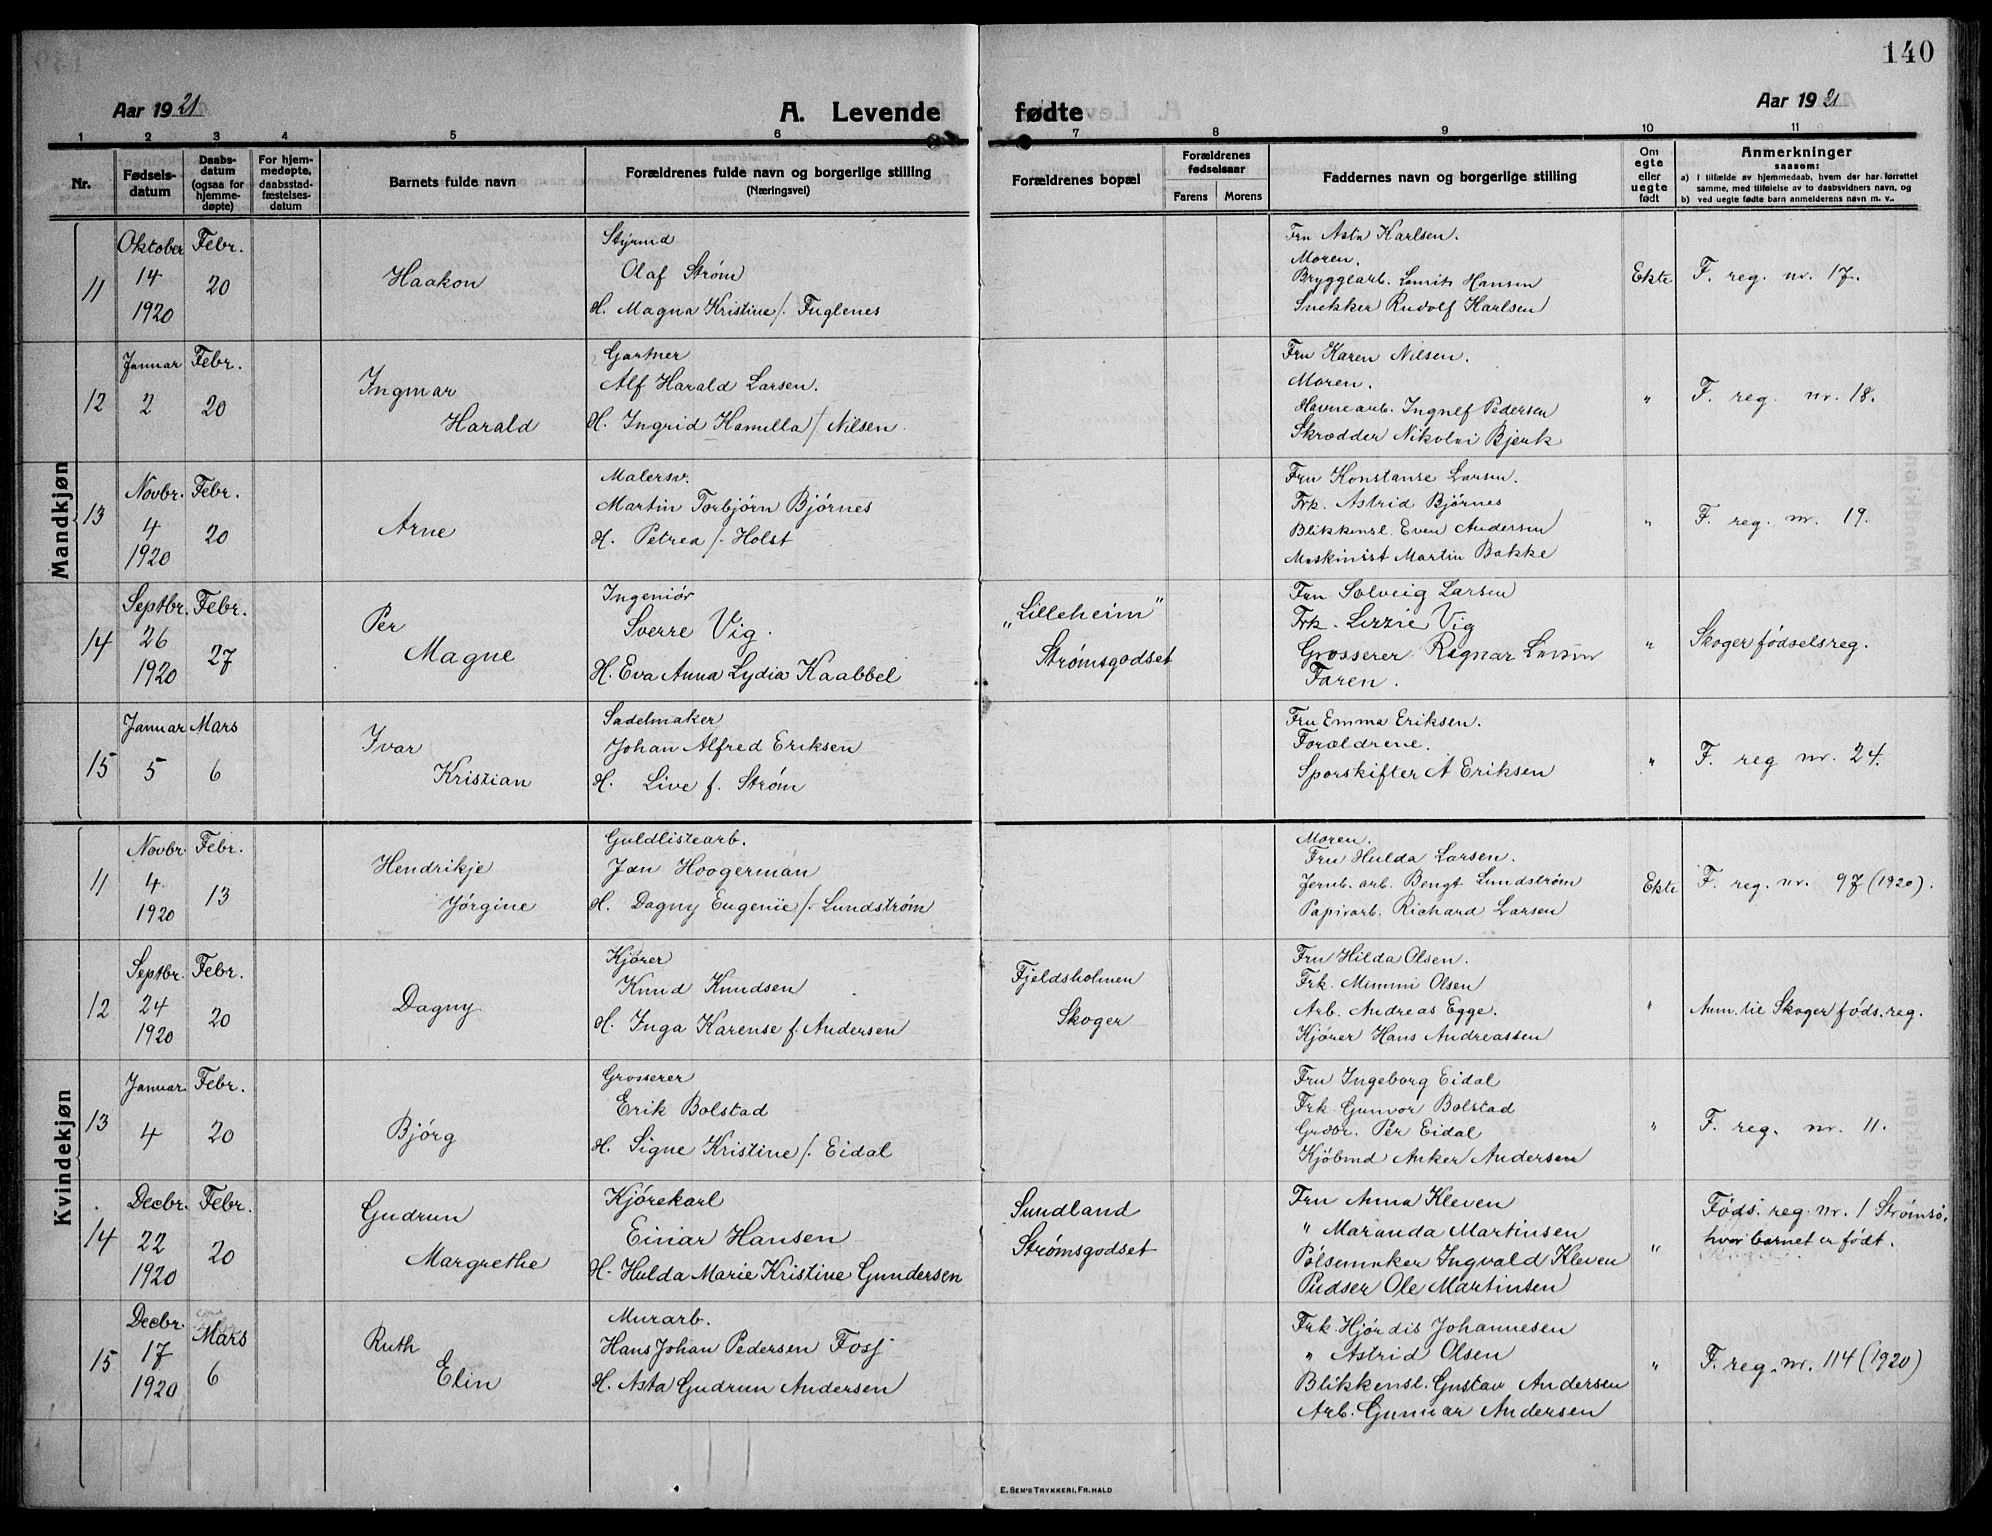 140
Aar 1921
A. Levende
fødte
Aar 1921
1 2 3 4 5 6 7 8 9 10 11
Nr.
Fødsels-
datum
Daabs-
datum
(ogsaa for
hjemme-
døpte)
For hjem-
medøpte,
daabsstad-
fæstelses-
datum
Barnets fulde navn
Forældrenes fulde navn og borgerlige stilling
(Næringsvei)
Forældrenes bopæl
Forældrenes
fødselsaar
Farens Morens
Faddernes navn og borgerlige stilling
Om
egte
eller
uegte
født
Anmerkninger
saasom:
a) I tilfælde av hjemmedaab, hvem der har forrettet
samme, med tilføielse av to daabsvidners navn, og
b) ved uegte fødte barn anmelderens navn m. v..
Mandkjøn
11
Oktober
14
1920
Febr.
20
Haakon
Styrmd
Olaf Strøm
H. Magna Kristine f. Fuglenes
Fru Asta Karlsen.
Moren.
Bryggearb. Hansen
Snekker Rudolf Karlsen
Ekte
F. reg. nr. 17.
12
Januar
2
Febr.
20
Ingmar
Harald
Gartner
Alf Harald Larsen.
H. Ingrid Kamilla f. Nilsen.
Fru Karen Nilsen.
Moren.
Havnearb. Ingolf Pedersen
Skrædder Nikolai Bjerk
"
F. reg. nr. 18.
13
Novbr.
4
1920
Febr.
20
Arne
Malersv.
Martin Torbjørn Bjørnes
H. Petrea f. Holst
Fru Konstanse Larsen.
Frk. Astrid Bjørnes
Blikkensl. Even Andersen
Maskinist Martin Bakke
"
F. reg. nr. 19.
14
Septbr.
26
1920
Febr.
27
Per
Magne
Ingeniør
Sverre Vig.
H. Eva Anna Lydia Kaabbel
„Lilleheim"
Strømsgodset
Fru Solveig Larsen
Frk. Lizzie Vig
Grosserer Ragnar Larsen
Faren.
"
Skoger fødselsreg.
15
Januar
5
Mars
6
Ivar
Kristian
Sadelmaker
Johan Alfred Eriksen
H. Live f. Strøm
Fru Emma Eriksen.
Forældrene.
Sporskifter A Eriksen
"
F. reg nr. 24.
Kvindekjøn
11
Novbr
4
1920
Febr.
13
Hendrikje
Jørgine
Guldlistearb.
Jan Hoogerman
H. Dagny Eugenie f. Lundstrøm
Moren.
Fru Hulda Larsen.
Jernb. arb. Bengt Lundstrøm
Papirarb. Richard Larsen
Ekte
F. reg. nr. 97 (1920).
12
Septbr.
24
1920
Febr.
20
Dagny
Kjører
Knud Knudsen
H. Inga Karense f. Andersen
Fjeldsholmen
Skoger
Fru Hilda Olsen.
Frk. Mimmi Olsen
Arb. Andreas Egge.
Kjører Hans Andreassen
"
Anm. til Skoger føds. reg.
13
Januar
4
Febr.
20
Bjørg
Grosserer
Erik Bolstad
H. Signe Kristine f. Eidal
Fru Ingeborg Eidal
Frk. Gunvor Bolstad
Grdbr. Per Eidal
Kjøbmd Anker Andersen
"
F. reg. nr. 11.
14
Decbr.
22
1920
Febr.
20
Gudrun
Margrethe
Kjørekarl
Einar Hansen
H. Hulda Marie Kristine Gundersen
Sundland
Strømsgodset
Fru Anna Kleven
" Maranda Martinsen
Pølsemaker Ingvald Kleven
Pudser Ole Martinsen
"
Føds. reg. nr. 1 Strømsø,
hvor barnet er født.
15
Decbr.
17
1920
Mars
6
Ruth
Elin
Murarb.
Hans Johan Pedersen Foss
H. Asta Gudrun Andersen
Frk. Hjørdis Johannesen
" Astrid Olsen
Blikkensl. Gustav Andersen
Arb. Gunnar Andersen
"
F. reg. nr. 114 (1920)
E. SEM'S TRYKKERI, FR. HALD